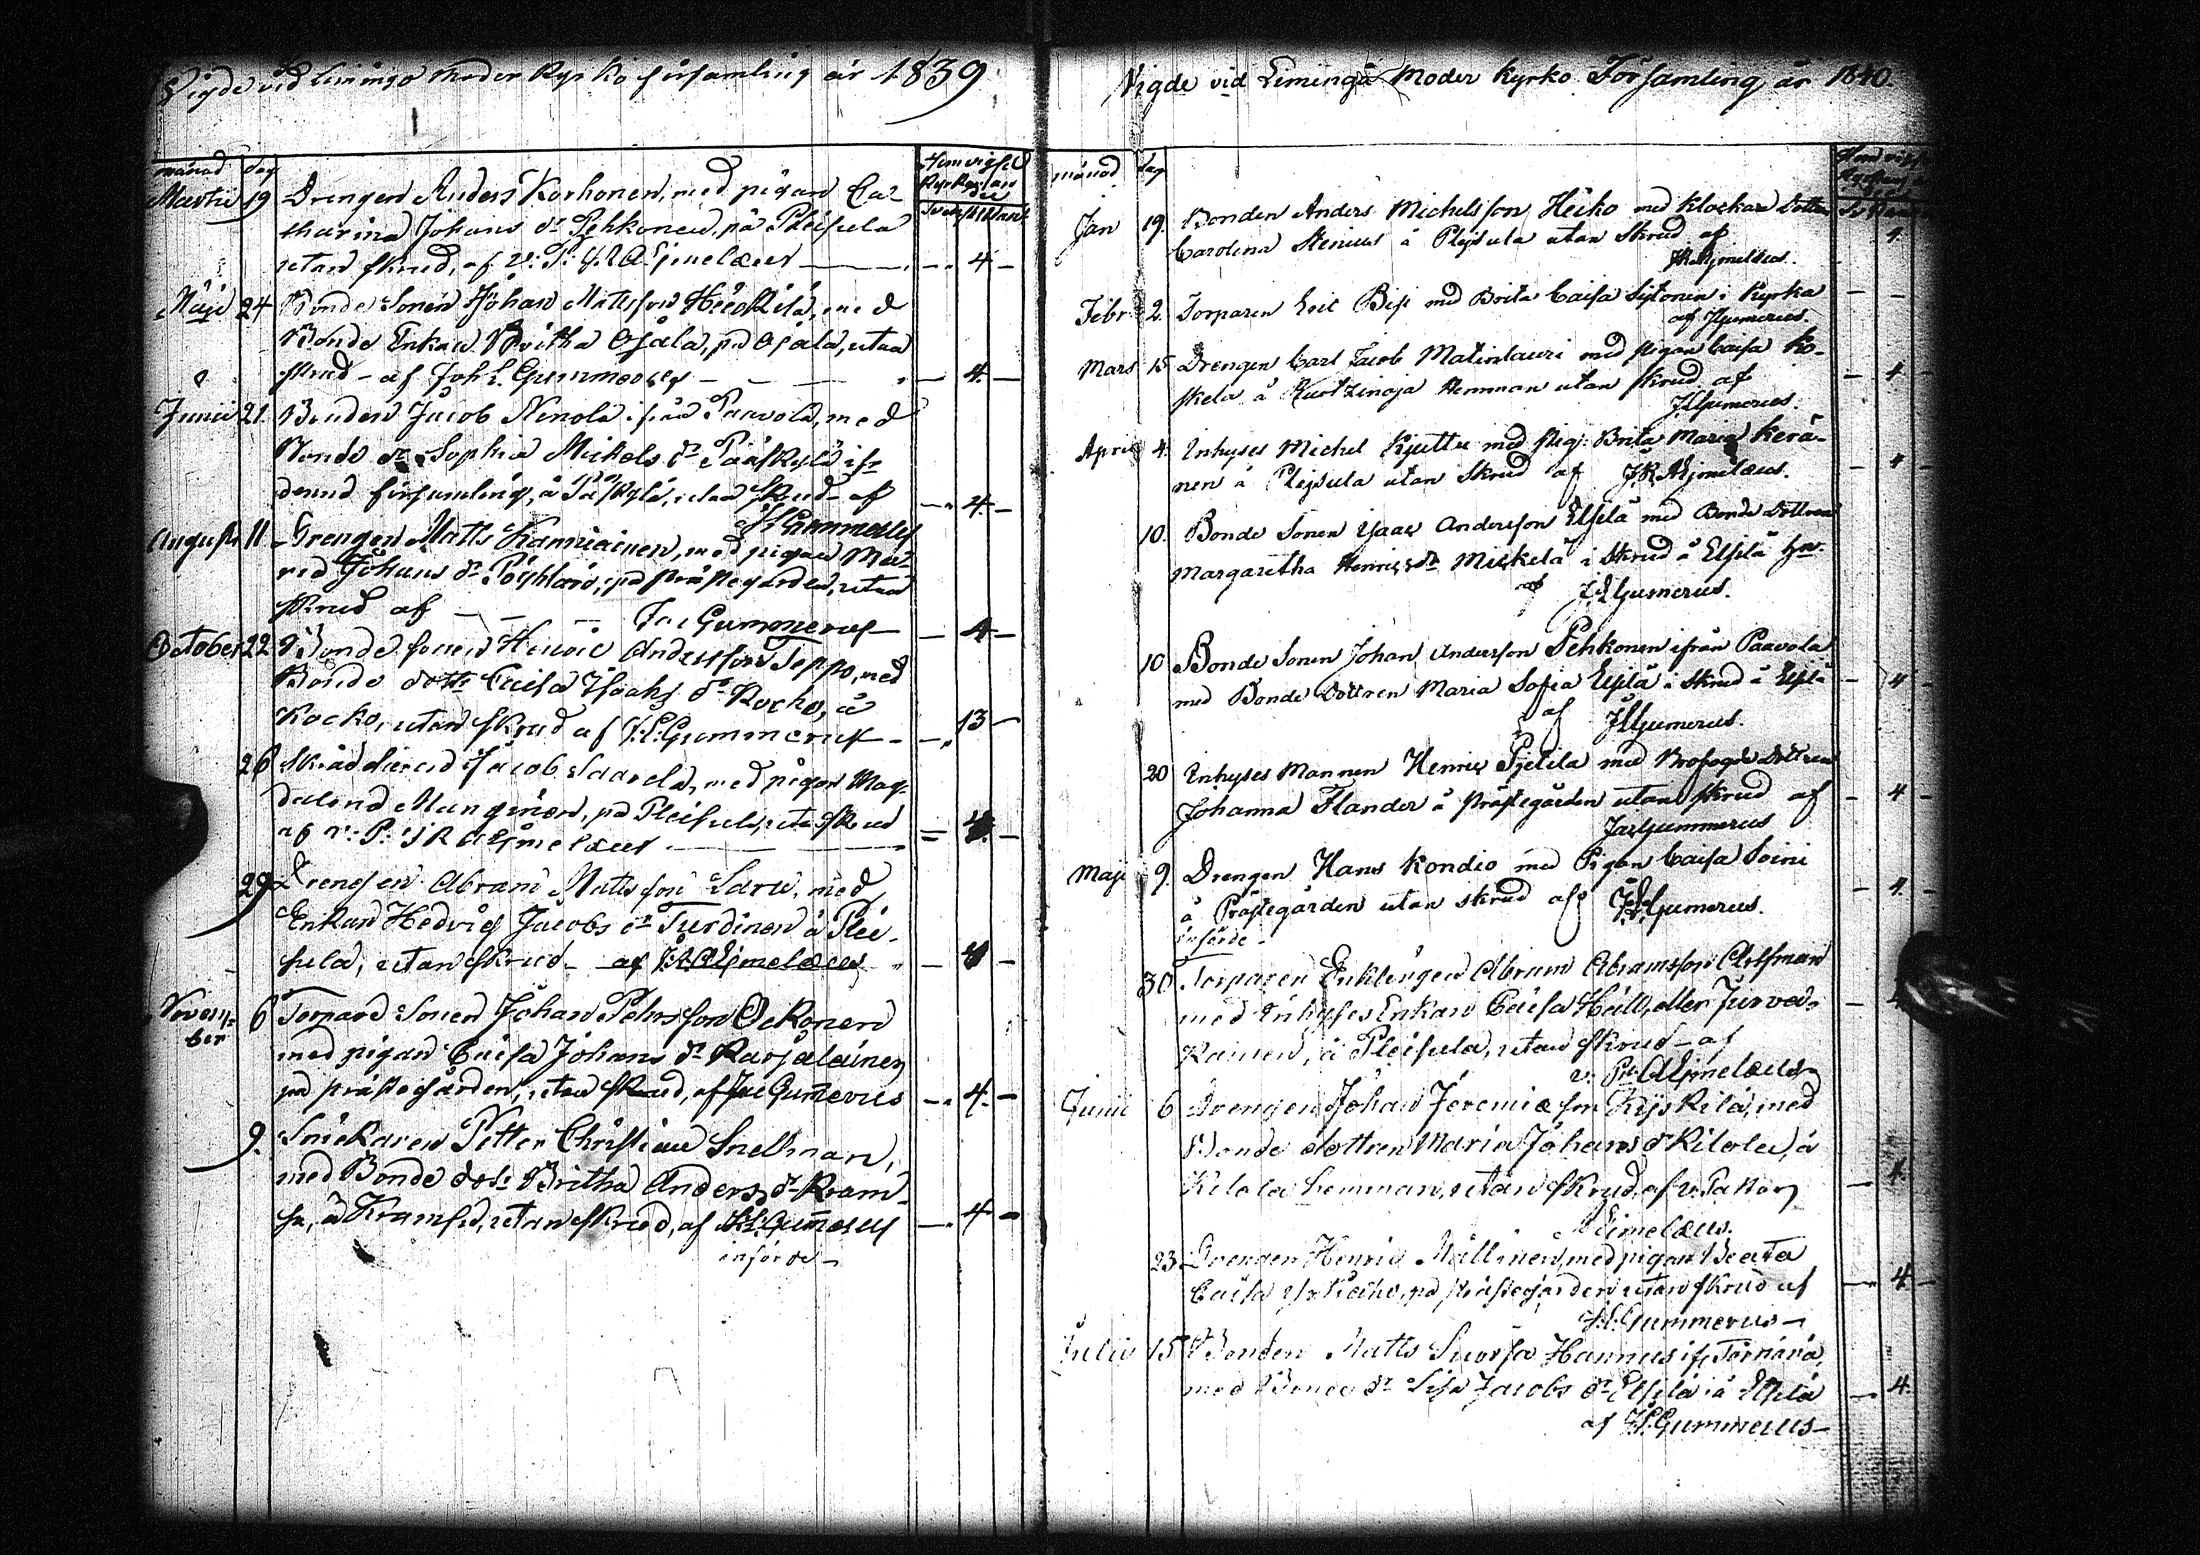 Vigde vid Limingo Moder Kyrko församling år 1839
månad dag Hemvigsel
Martii 19 Drengen Anders Korhonen, med pigan Ca-
tharina Johans dr Pehkonen, på Pleisula
utan skrud, af v: P: J R Aejmelæus — 4 —
Maji 24 Bonde Sonen Johan Mattsson Heickilä, med
Bonde Enkan Britha Ojala, på Ojala, utan
skrud - af Joh L Gummerus — 4. —
Junii 21. Bonden Jacob Nenola ifrån Paavola, med
Bonde dr Sophia Michels dr Pääskylä ifr
denna församling, å Pääskylä, utan skrud - af — 4. —
J L Gummerus
August 11 Drengen Matts Kanniainen, med pigan Ma-
ria Johans dr Pöyhtäri, på prästegården, utan
skrud af — Jac Gummerus — 4 —
October 22 Bonde sonen Henric Andersson Seppo, med
Bonde dottr Caisa Isaks dr Kocko, å
Kocko, utan skrud af J. L. Gummerus — 13 —
26 Skräddaren Jacob Saarela, med pigan Mag-
dalena Manginen, på Pleisula, utan skrud
af v: P: J R Aejmelæus — 4. —
29 Drengen Abram Mattsson Saru, med
Enkan Hedvig Jacobs dr Turdinen å Plei-
sula, utan skrud - af J. R. Aejmelæus — 4 —
Novem-
ber 6 Torpare Sonen Johan Pehrsson Ockonen
med pigan Caisa Johans dr Karjalainen
på prästegården, utan skrud, af Jac Gummerus — 4. —
9. Snickaren Petter Christian Snellman,
med Bonde dotr Britha Anders dr Kram-
su, å Kramsu, utan skrud, af J L Gummerus — 4 —
införde —
Vigde vid Limingo Moder Kyrko Församling år 1840.
månad dag
Jan 19. Bonden Anders Michelsson Heiko med Klockare Dottren
Carolina Stenius å Plejsula utan Skrud af 4.
J R Ajmelæus.
Febr. 2. Torparen Eric Bisi med Brita Caisa Sytonen i Kyrka
af J L Gumerus.
Mars 15 Drengen Carl Jacob Matinlauri med pigan Caisa Ko-
skela å Ruotzinoja Hemman utan skrud af — 4. —
J L Gumerus.
April 4. Inhyses Michel Kjuttu med Pig. Brita Maria Kerä-
nen å Plejsula utan Skrud af J. R. Ajmelæus. — 4 —
10. Bonde Sonen Isaac Andersson Elsilä med Bonde Dottren
Margaretha Henricsdr Mickelä i Skrud å Elsilä hn.
af J L Gumerus.
10 Bonde Sonen Johan Andersson Pehkonen ifrån Paavola
med Bonde Dottren Maria Sofia Elsilä i Skrud å Elsilä — 4 —
af J L Gumerus.
20 Inhyses Mannen Henric Pjetila med Rofogde Dottren
Johanna Flander å Prästegården utan skrud af — 4 —
Jac Gummerus
Maji 9. Drengen Hans Kondio med Pigan Caisa Soini
å Prästegården utan skrud af J L Gumerus. — 4. —
införde —
30 Torparen Enklingen Abram Abramsson Artsman
med Inhyses Enkan Caisa Häll, eller Jurva-
kainen, å Pleisula, utan skrud - af
v: P: Aejmelæus
Junii 6 Drengen Johan Jeremiæson Kyskilä, med
Bonde dottren Maria Johans dr Kilola, å
Kilola hemman, utan skrud, af v: Pastor — 4.
Aejmelæus.
23 Drengen Henric Mällinen, med pigan Beata
Caisa, på prästegården utan skrud af — 4 —
J. L. Gummerus —
Julii 15 Bonden Matts Suorsa Hannus ifr Törnävä,
med Bonde dr Lisa Jacobs dr Elsilä, å Elsilä — 4.
af J. L. Gummerus —